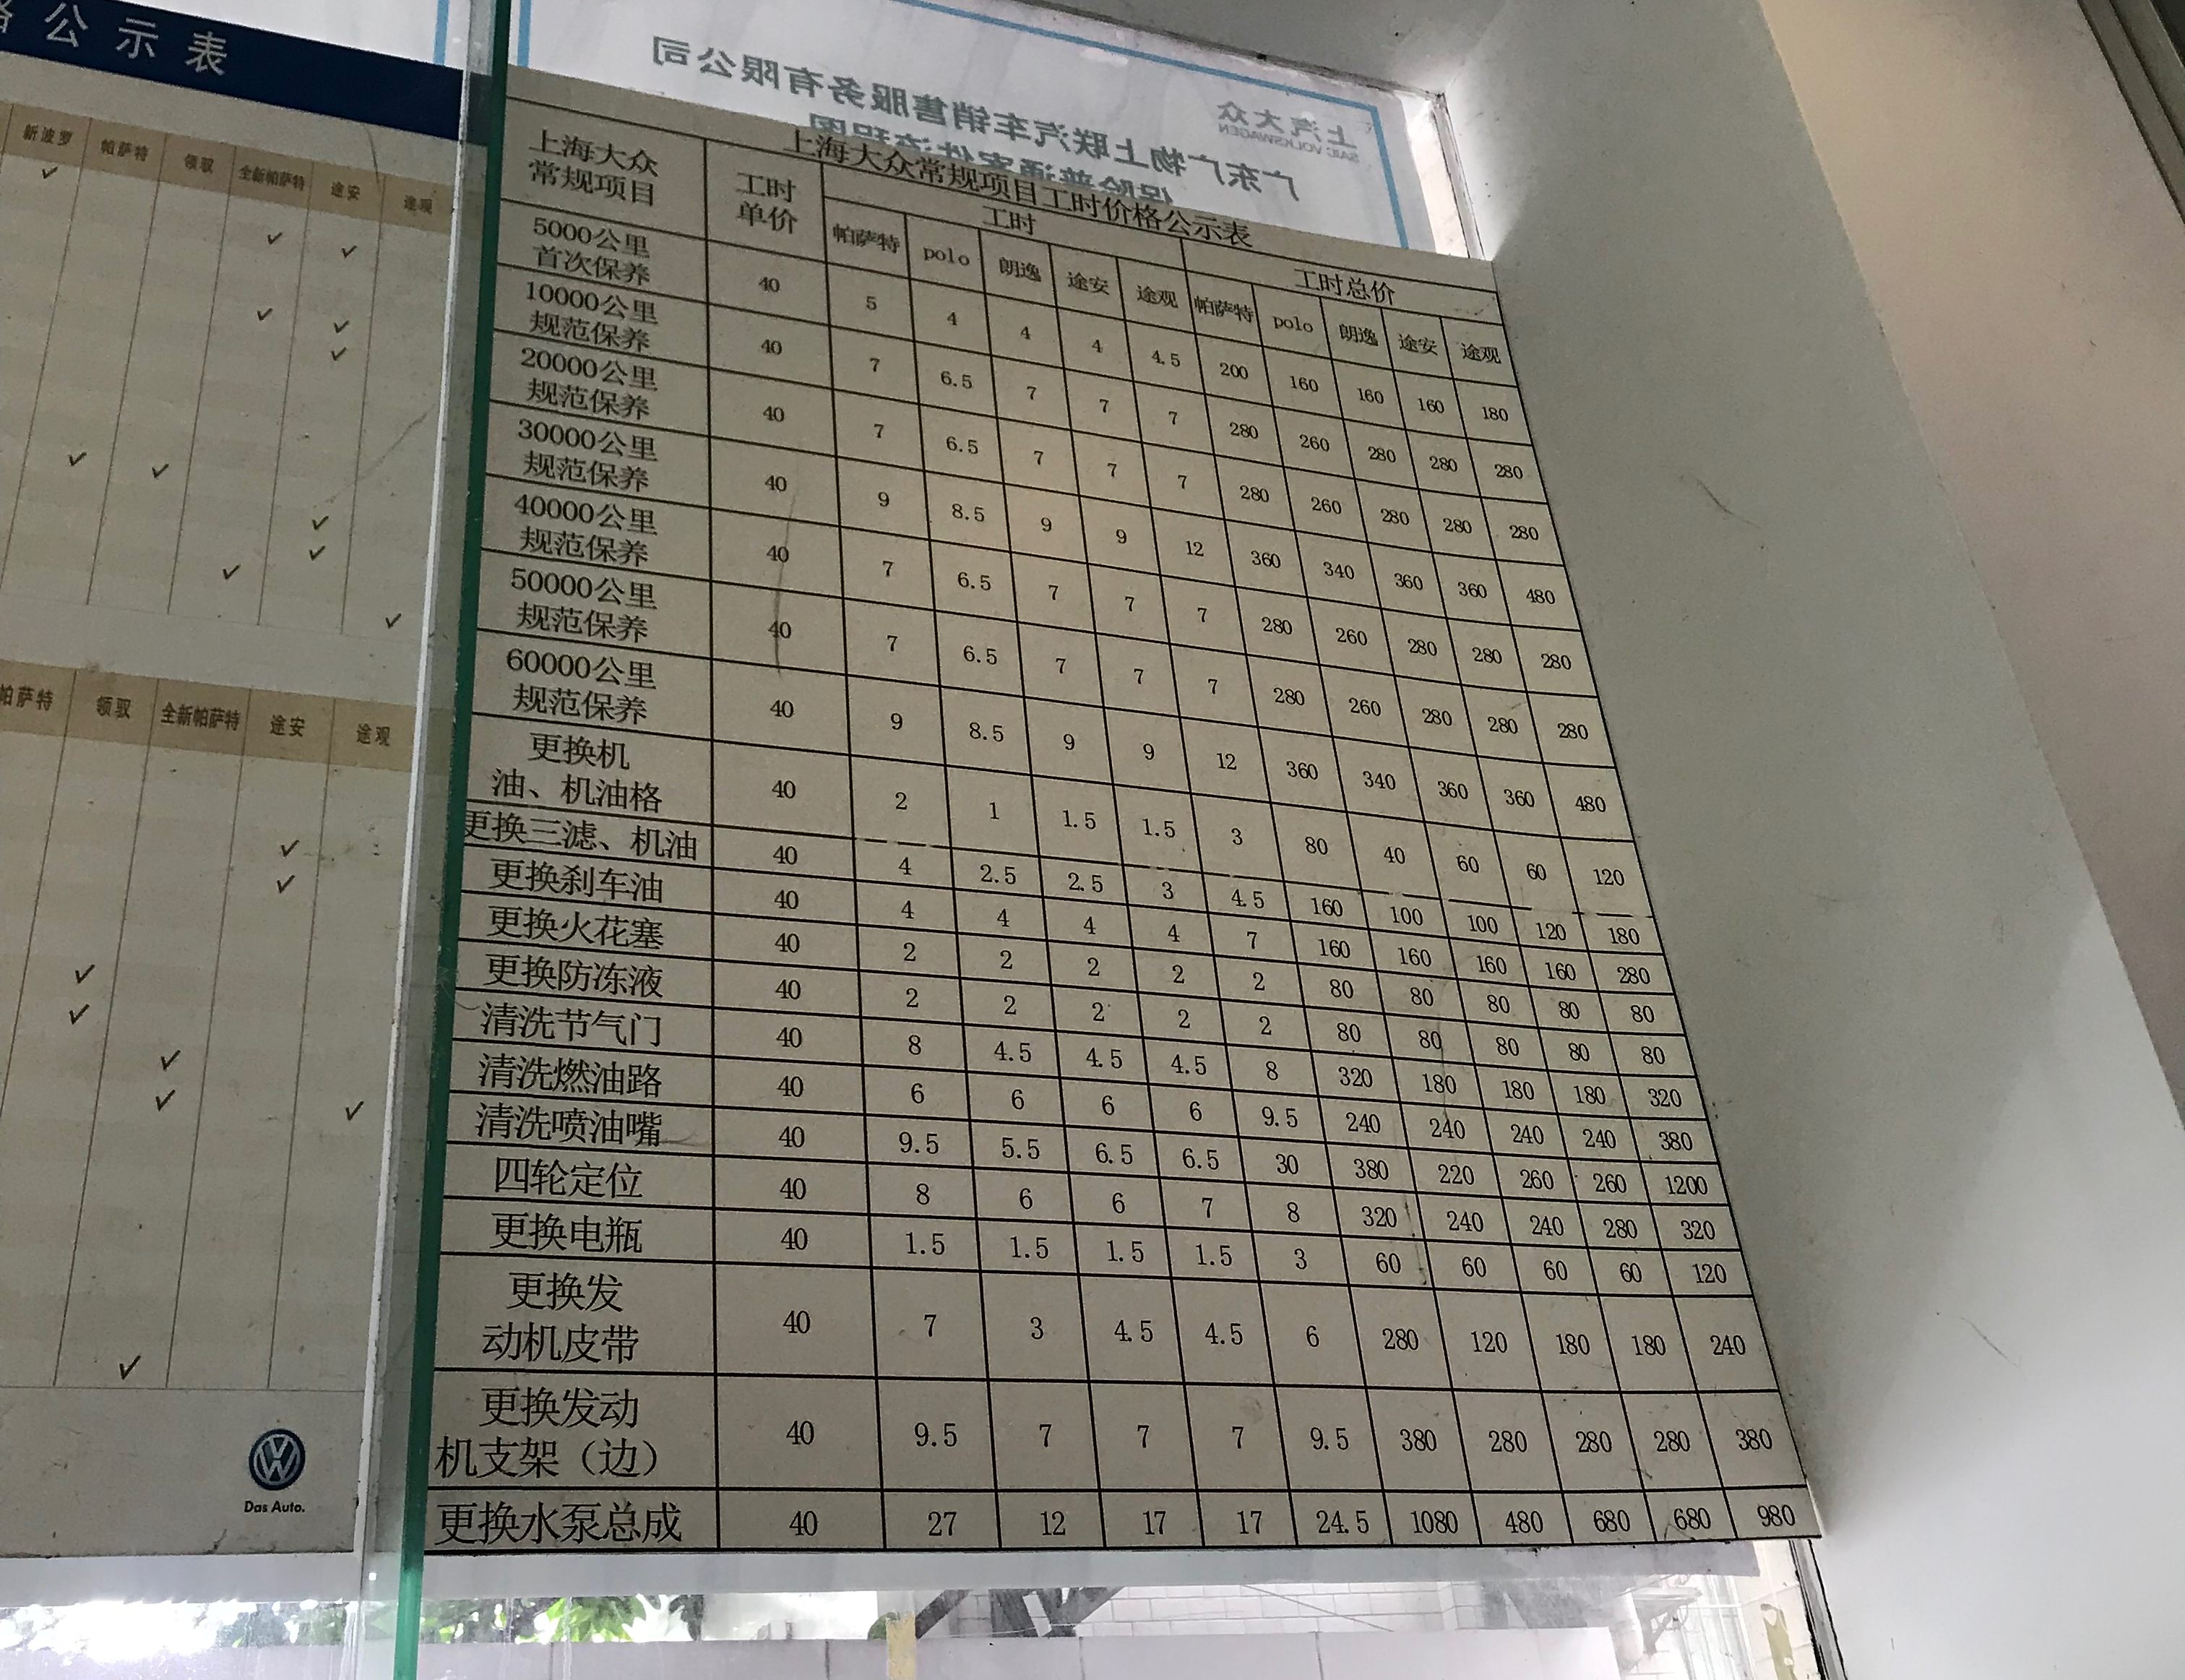 格公示表
新波罗 帕萨特 领驭 全新帕萨特 途安 途观
帕萨特 领驭 全新帕萨特 途安 途观
Das Auto.
上汽大众
SAIC VOLKSWAGEN
广东广物上联汽车销售服务有限公司
保险普通案件流程图
上海大众常规项目工时价格公示表
上海大众
常规项目
工时
单价
工时
工时总价
帕萨特 polo 朗逸 途安 途观 帕萨特 polo 朗逸 途安 途观
5000公里
首次保养
40 5 4 4 4 4.5 200 160 160 160 180
10000公里
规范保养
40 7 6.5 7 7 7 280 260 280 280 280
20000公里
规范保养
40 7 6.5 7 7 7 280 260 280 280 280
30000公里
规范保养
40 9 8.5 9 9 12 360 340 360 360 480
40000公里
规范保养
40 7 6.5 7 7 7 280 260 280 280 280
50000公里
规范保养
40 7 6.5 7 7 7 280 260 280 280 280
60000公里
规范保养
40 9 8.5 9 9 12 360 340 360 360 480
更换机
油、机油格
40 2 1 1.5 1.5 3 80 40 60 60 120
更换三滤、机油 40 4 2.5 2.5 3 4.5 160 100 100 120 180
更换刹车油 40 4 4 4 4 7 160 160 160 160 280
更换火花塞 40 2 2 2 2 2 80 80 80 80 80
更换防冻液 40 2 2 2 2 2 80 80 80 80 80
清洗节气门 40 8 4.5 4.5 4.5 8 320 180 180 180 320
清洗燃油路 40 6 6 6 6 9.5 240 240 240 240 380
清洗喷油嘴 40 9.5 5.5 6.5 6.5 30 380 220 260 260 1200
四轮定位 40 8 6 6 7 8 320 240 240 280 320
更换电瓶 40 1.5 1.5 1.5 1.5 3 60 60 60 60 120
更换发
动机皮带
40 7 3 4.5 4.5 6 280 120 180 180 240
更换发动
机支架（边）
40 9.5 7 7 7 9.5 380 280 280 280 380
更换水泵总成 40 27 12 17 17 24.5 1080 480 680 680 980